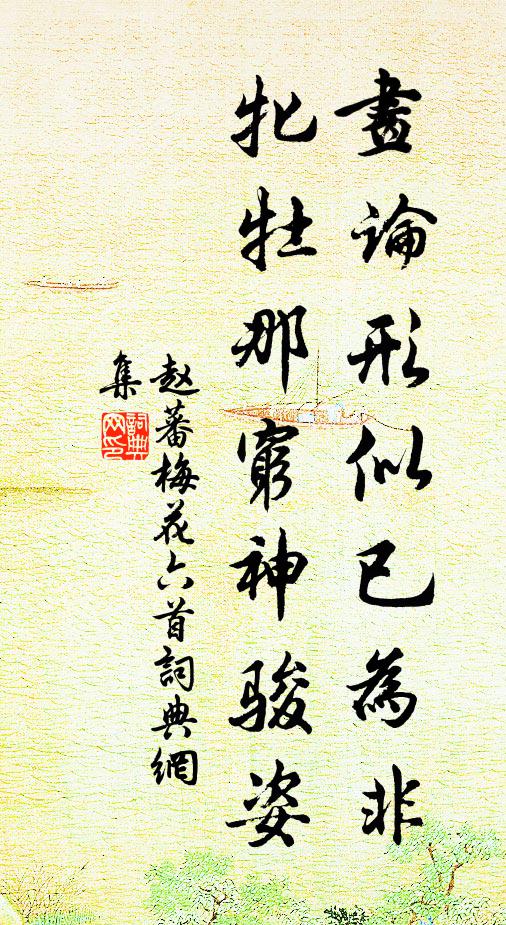 畫論形似已為非
牝牡那窮神駿姿
赵蕃梅花六首詞典網
集
詞典
网印